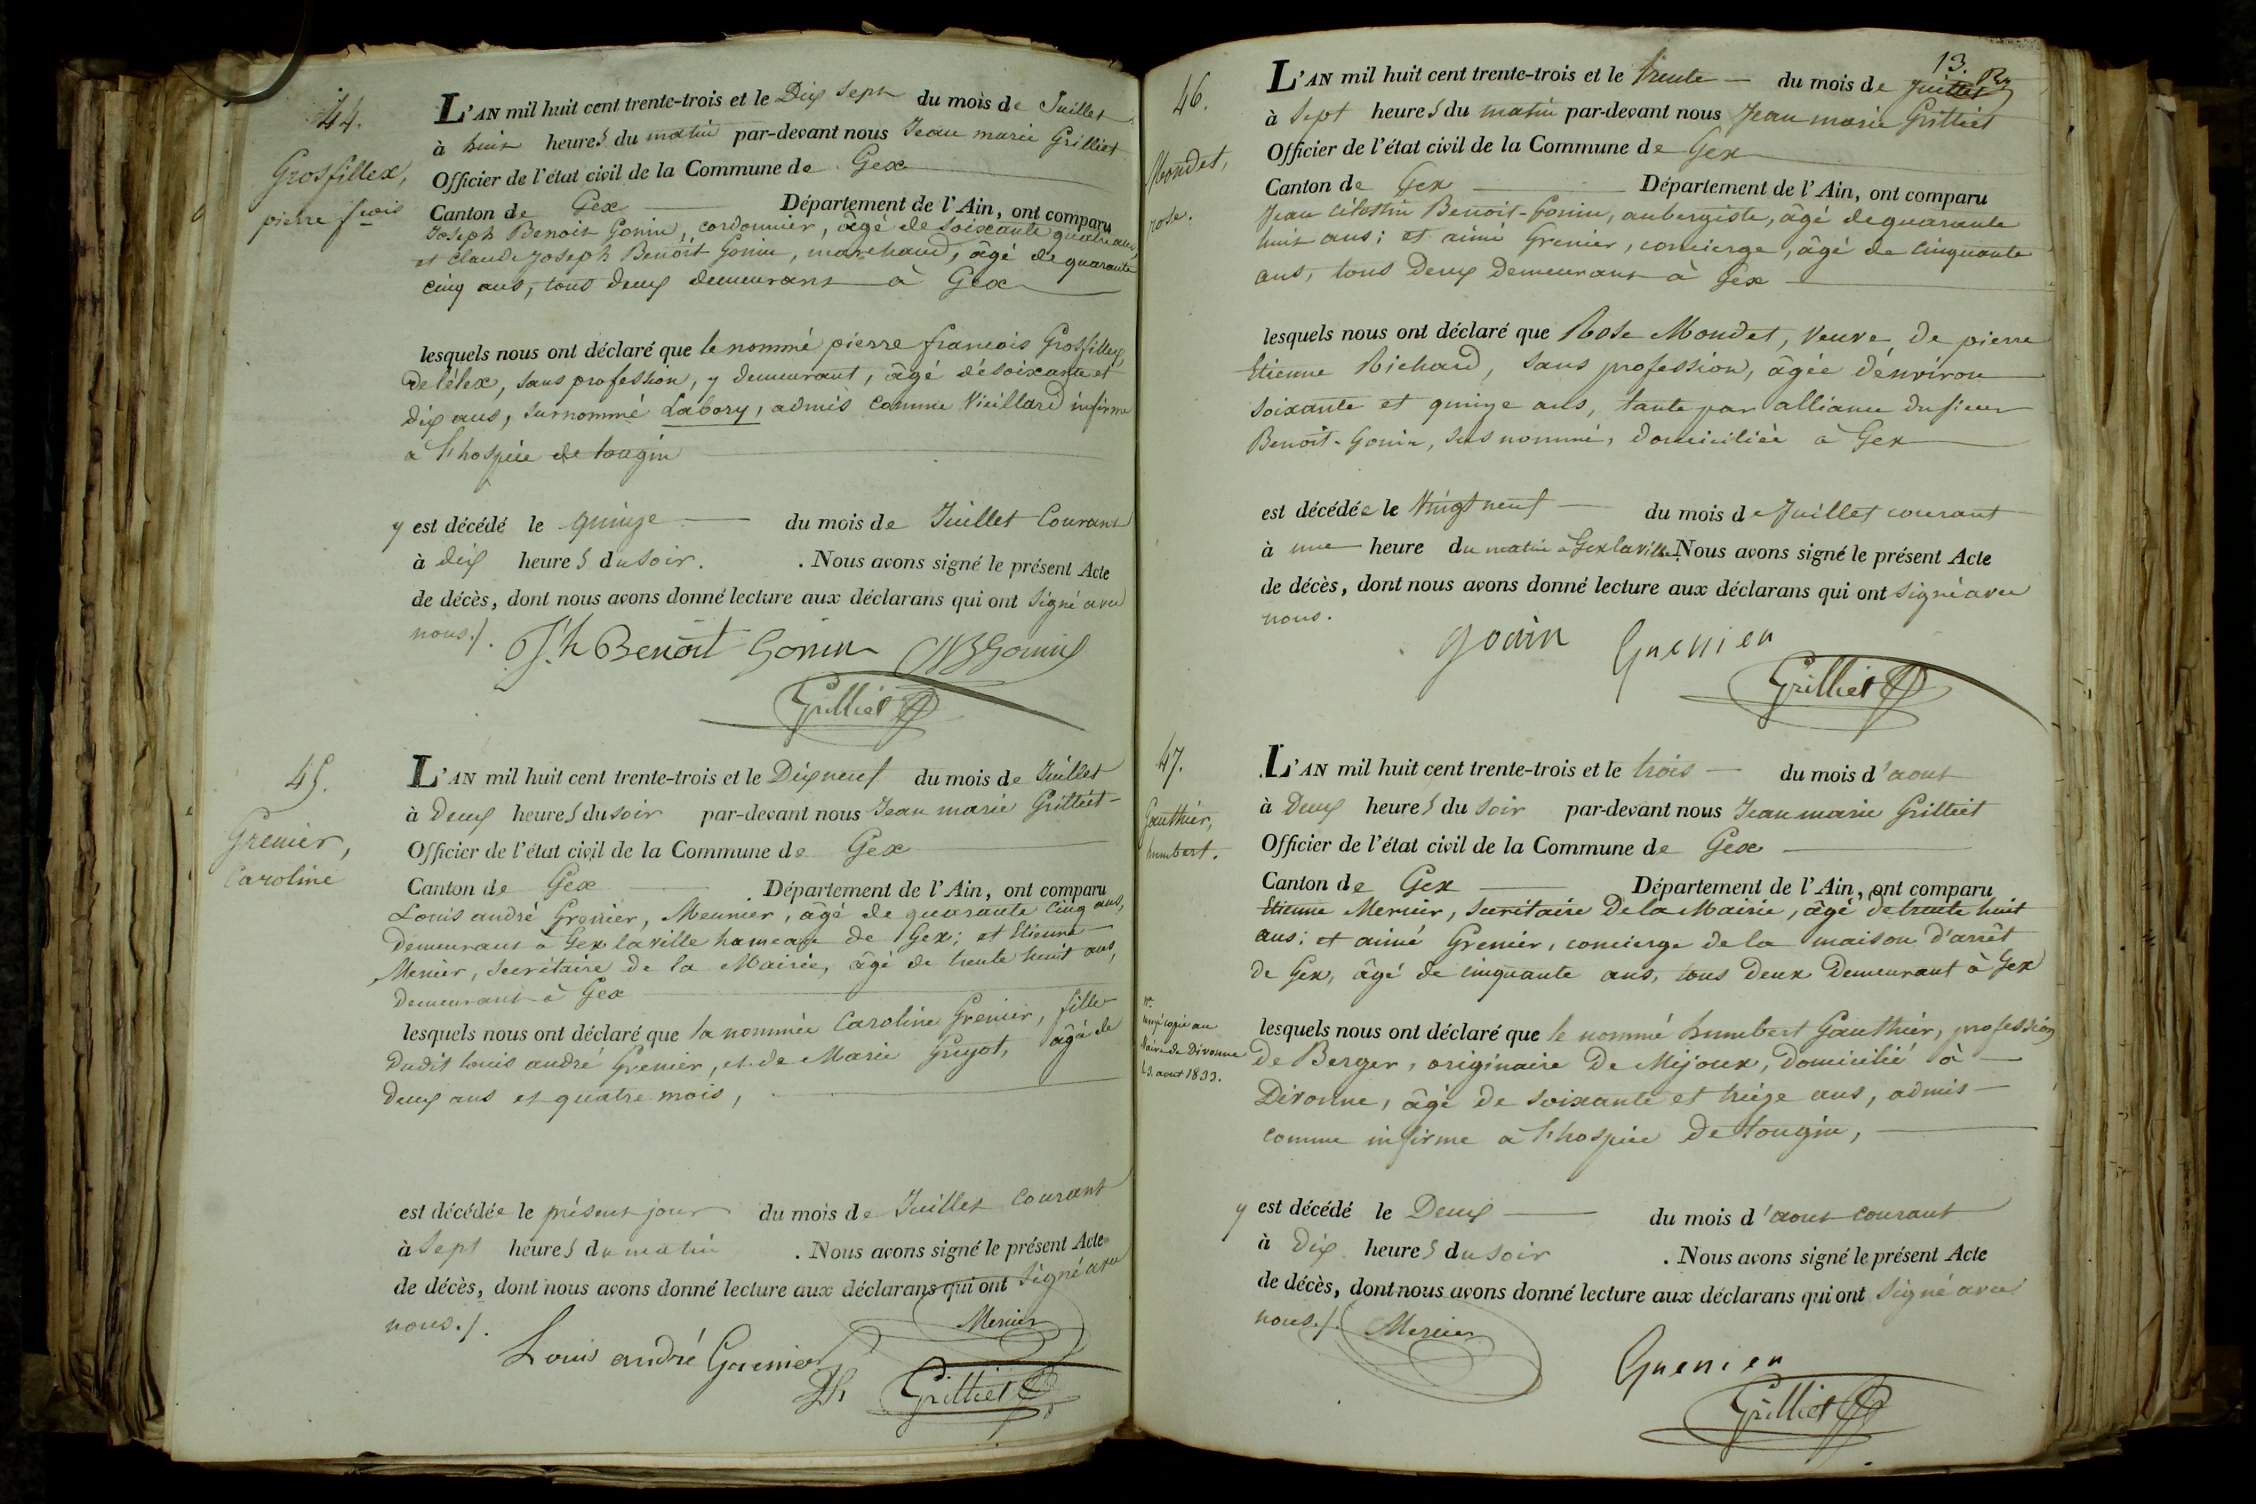 44.
Grosfillex,
pierre fcois
L'AN mil huit cent trente-trois et le Dix sept du mois de Juillet
à huit heures du matin par-devant nous Jean marie Grilliet
Officier de l'état civil de la Commune de Gex
Canton de Gex Département de l'Ain, ont comparu
Joseph Benoit Gonin, cordonnier, âgé de soixante quatre ans,
et Claude Joseph Benoit Gonin, marchand, âgé de quarante
cinq ans, tous deux demeurans à Gex
lesquels nous ont déclaré que le nommé pierre francois Grosfillex,
de lélex, sans profession, y demeurant, âgé de soixante et
dix ans, surnommé Labory, admis comme vieillard infirme
à l'hospice de tougin
y est décédé le quinze du mois de Juillet Courant
à dix heures du soir. . Nous avons signé le présent Acte
de décès, dont nous avons donné lecture aux déclarans qui ont signé avec
nous./.
Jh Benoit Gonin
Grilliet
45.
Grenier,
Caroline
L'AN mil huit cent trente-trois et le Dix neuf du mois de Juillet
à Deux heures du soir par-devant nous Jean marie Grilliet
Officier de l'état civil de la Commune de Gex
Canton de Gex Département de l'Ain, ont comparu
Louis andré Grenier, Meunier, âgé de quarante cinq ans,
demeurant à Gex la ville hameau de Gex; et Etienne
Mercier, secrétaire de la Mairie, âgé de trente huit ans,
demeurant à Gex
lesquels nous ont déclaré que la nommée Caroline Grenier, fille
dudit Louis andré Grenier, et de Marie Guyot, âgé de
deux ans et quatre mois,
est décédée le présent jour du mois de Juillet Courant
à Sept heures du matin . Nous avons signé le présent Acte
de décès, dont nous avons donné lecture aux déclarans qui ont signé avec
nous./.
Mercier
Louis andré Grenier
Grilliet
13.
46.
Mondet,
rose.
L'AN mil huit cent trente-trois et le trente du mois de Juillet
à Sept heures du matin par-devant nous Jean marie Grilliet
Officier de l'état civil de la Commune de Gex
Canton de Gex Département de l'Ain, ont comparu
Jean Célestin Benoit-Gonin, aubergiste, âgé de quarante
huit ans; et aimé Grenier, concierge, âgé de cinquante
ans, tous deux demeurant à Gex
lesquels nous ont déclaré que Rose Mondet, veuve de pierre
Etienne Richard, sans profession, âgée d'environ
soixante et quinze ans, tante par alliance du sieur
Benoit-Gonin, sus nommé, domiciliée à Gex
est décédée le Vingt neuf du mois de Juillet courant
à une heure du matin à Gex la ville. Nous avons signé le présent Acte
de décès, dont nous avons donné lecture aux déclarans qui ont signé avec
nous.
gonin Grenier
Grilliet
47.
Gauthier,
humbert.
L'AN mil huit cent trente-trois et le trois du mois d'aout
à Deux heures du soir par-devant nous Jean marie Grilliet
Officier de l'état civil de la Commune de Gex
Canton de Gex Département de l'Ain, ont comparu
Etienne Mercier, secrétaire de la Mairie, âgé de trente huit
ans; et aimé Grenier, concierge de la maison d'arrêt
de Gex, âgé de cinquante ans, tous deux demeurant à Gex
copie au
Maire de Divonne
aout 1833.
lesquels nous ont déclaré que le nommé humbert Gauthier, profession
de Berger, originaire de Mijoux, domicilié à
Divonne, âgé de soixante et treize ans, admis
comme infirme à l'hospice de tougin,
y est décédé le Deux du mois d'aout courant
à Dix heures du soir . Nous avons signé le présent Acte
de décès, dont nous avons donné lecture aux déclarans qui ont signé avec
nous./.
Mercier
Grenier
Grilliet